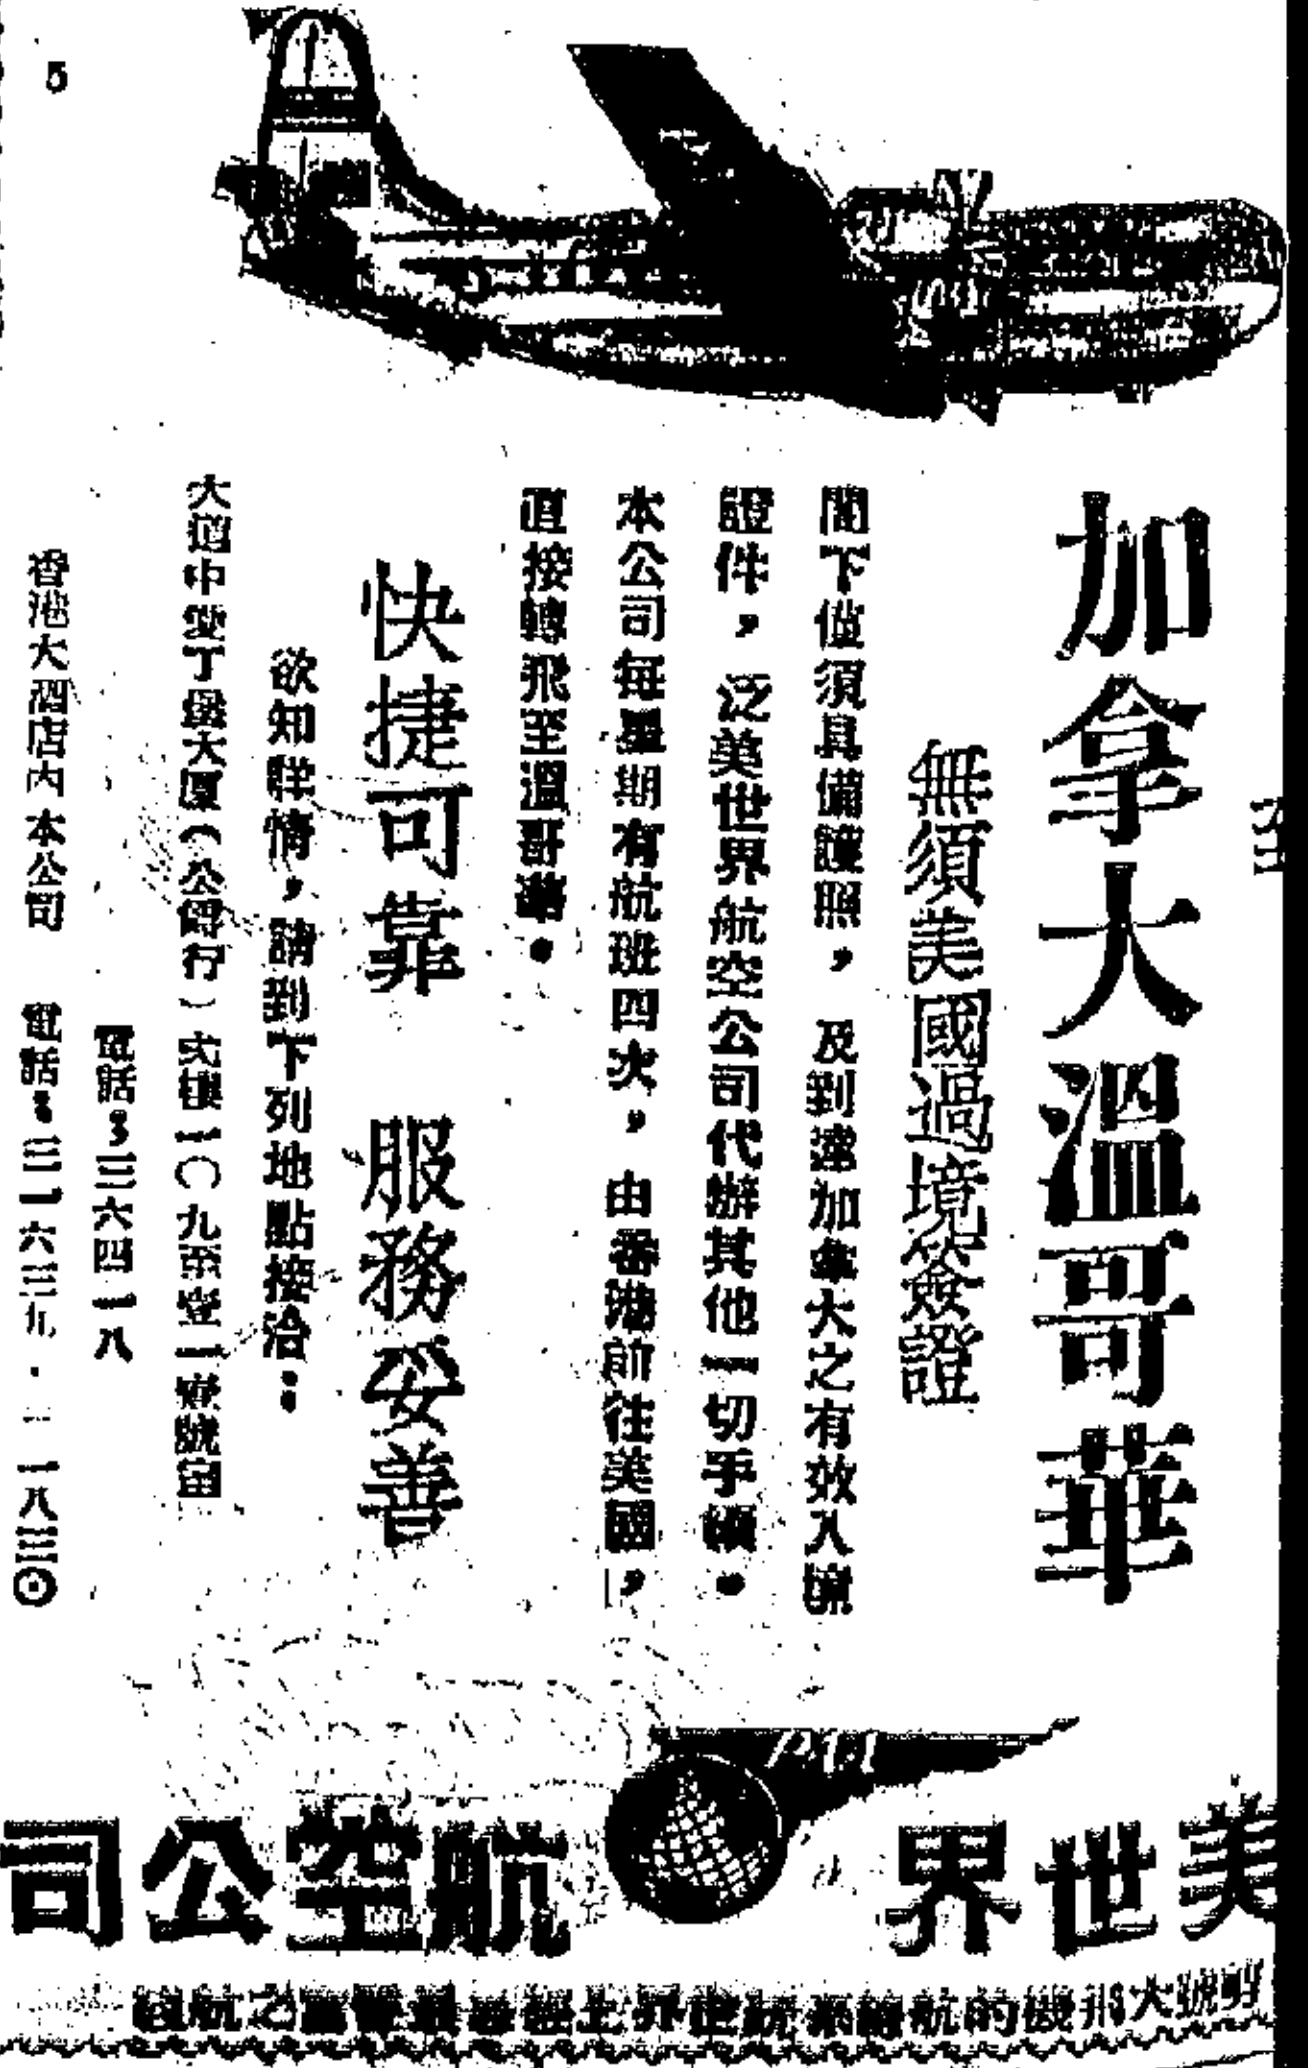 加拿大溫哥華
無須美國過境簽證
閣下僅須具備護照，及到達加拿大之有效入境
證件，泛美世界航空公司代辦其他一切手續。
本公司每星期有航班四次，由香港前往美國，
直接轉飛至溫哥華。
快捷可靠 服務妥善
欲知詳情，請到下列地點接洽：
大道中 丁 大厦（公爵行） 一〇九至 一 號室
電話：三六四一八
香港大酒店內本公司 電話：三一六三九・二一八三〇
美世界航空公司
號大飛機的航 世界上 之航
PAA
5